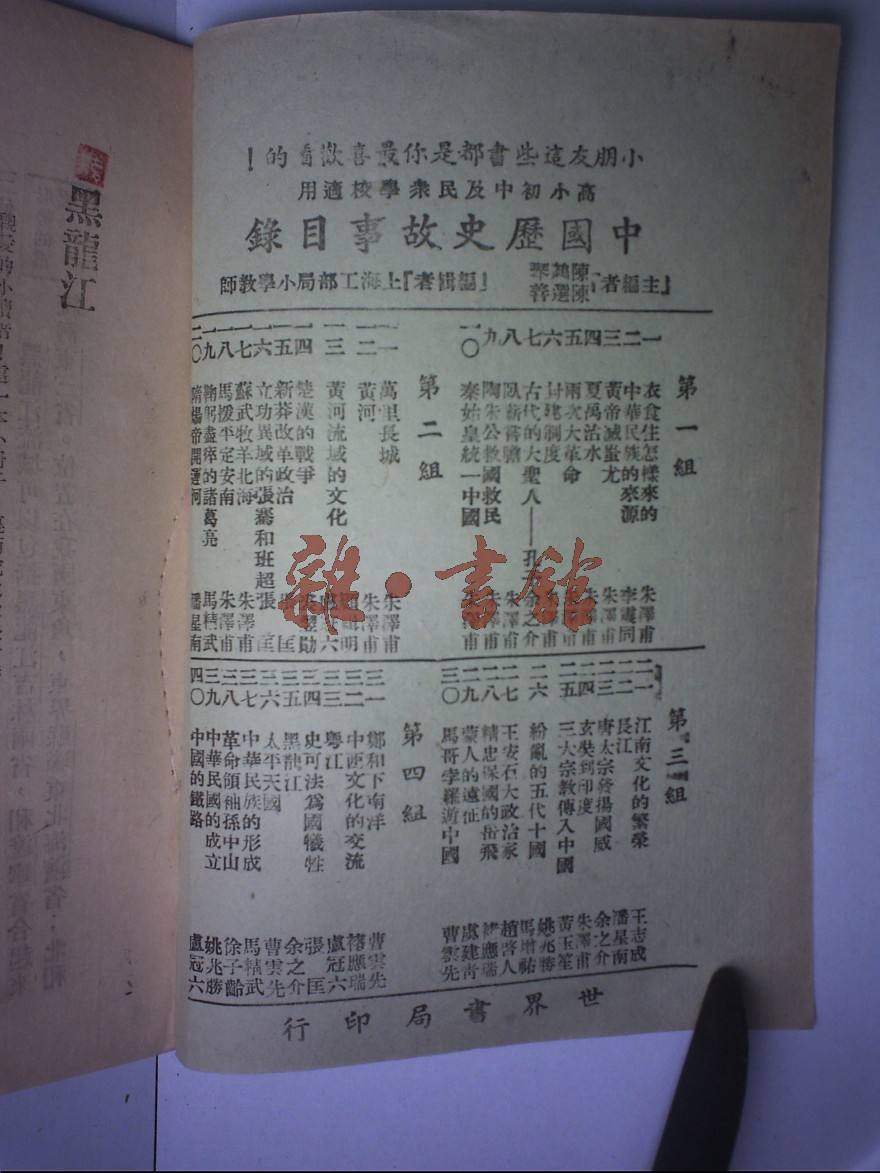 小朋友這些書都是你最喜歡看的！
高小初中及民衆學校適用
中國歷史故事目錄
主編者：陳鶴琴 陳選善 『編輯者』上海工部局小學教師
第一組
一 衣食住怎樣來的 朱澤甫
二 中華民族的來源 李震同
三 黃帝滅蚩尤 朱澤甫
四 夏禹治水 朱澤甫
五 兩次大革命 朱澤甫
六 封建制度 朱澤甫
七 古代的大聖人——孔子 余之介
八 臥薪嘗膽 朱澤甫
九 陶朱公救國救民 朱澤甫
一〇 秦始皇統一中國 朱澤甫
第二組
一一 萬里長城 朱澤甫
一二 黃河 朱澤甫
一三 黃河流域的文化
一四 楚漢的戰爭
一五 新莽改革政治 張匡
一六 立功異域的張騫和班超 張匡
一七 蘇武牧羊北海 朱澤甫
一八 馬援平定安南 朱澤甫
一九 鞠躬盡瘁的諸葛亮 馬精武
二〇 隋煬帝開運河 潘星南
第三組
二一 江南文化的繁榮 王志成
二二 長江 潘星南
二三 唐太宗發揚國威 余之介
二四 玄奘到印度 朱澤甫
二五 三大宗教傳入中國 黃玉笙
二六 紛亂的五代十國 姚兆勝
二七 王安石大政治家 趙啓人
二八 精忠保國的岳飛 褚應瑞
二九 蒙人的遠征 虞建青
三〇 馬哥孛羅遊中國 曹雲先
第四組
三一 鄭和下南洋 曹雲先
三二 中西文化的交流 褚應瑞
三三 粵江 盧冠六
三四 史可法爲國犧牲 張匡
三五 黑龍江 余之介
三六 太平天國 曹雲先
三七 中華民族的形成 馬精武
三八 革命領袖孫中山 徐子齡
三九 中華民國的成立 姚兆勝
四〇 中國的鐵路 盧冠六
世界書局印行
雜·書館
黑龍江